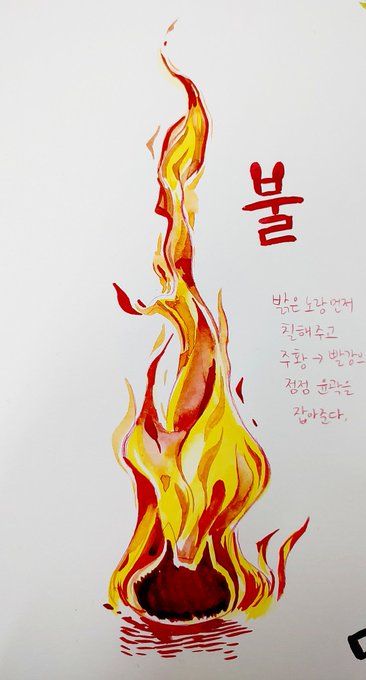 불
밝은 노랑 먼저
칠해주고
주황 → 빨강으
점점 윤곽을
잡아준다.